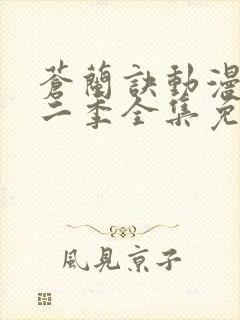 蒼蘭訣動漫
二季全集免
風見京子